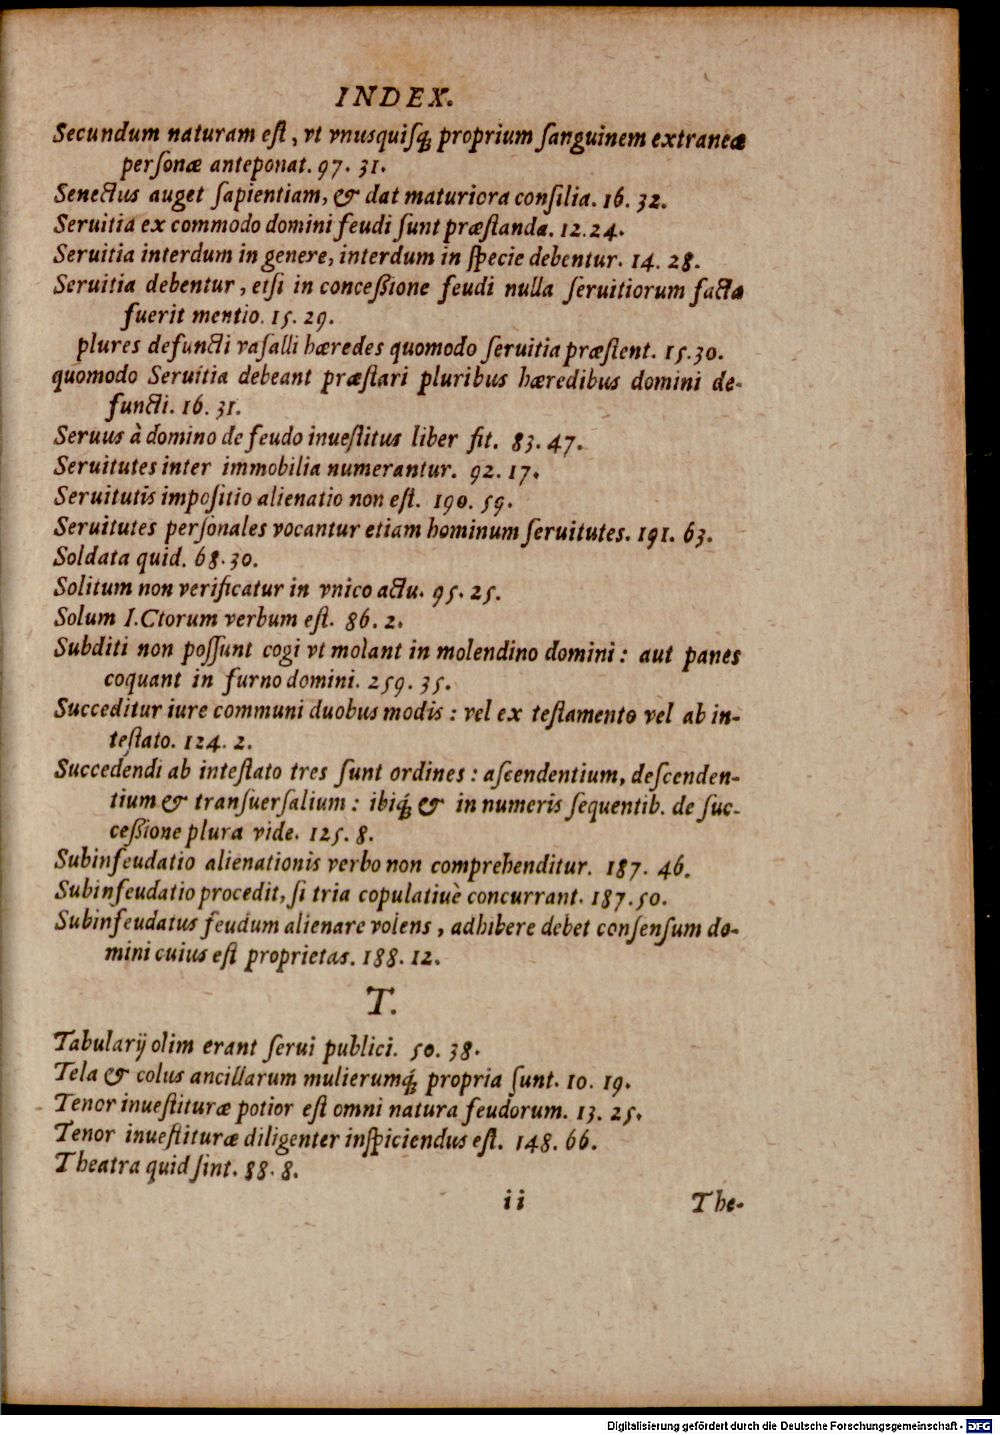 INDEX.
Secundum naturam eſt, vt vnusquiſq́; proprium ſanguinem extraneæ
perſonæ anteponat. 97. 31.
Senectus auget ſapientiam, & dat maturiora conſilia. 16. 32.
Seruitia ex commodo domini feudi ſunt præſtanda. 12.24.
Seruitia interdum in genere, interdum in ſpecie debentur. 14. 28.
Seruitia debentur, etſi in conceßione feudi nulla ſeruitiorum facta
fuerit mentio. 15. 29.
plures defuncti vaſalli hæredes quomodo ſeruitia præſtent. 15.30.
quomodo Seruitia debeant præſtari pluribus hæredibus domini de-
functi. 16. 31.
Seruus à domino de feudo inueſtitus liber fit. 83. 47.
Seruitutes inter immobilia numerantur. 92. 17.
Seruitutis impoſitio alienatio non eſt. 190. 59.
Seruitutes perſonales vocantur etiam hominum ſeruitutes. 191. 63.
Soldata quid. 68.30.
Solitum non verificatur in vnico actu. 95. 25.
Solum I.Ctorum verbum eſt. 86. 2.
Subditi non poſſunt cogi vt molant in molendino domini: aut panes
coquant in furno domini. 259. 35.
Succeditur iure communi duobus modis: vel ex teſtamento vel ab in-
teſtato. 124. 2.
Succedendi ab inteſtato tres ſunt ordines: aſcendentium, deſcenden-
tium & tranſuerſalium: ibiq́; & in numeris ſequentib. de ſuc-
ceßione plura vide. 125. 8.
Subinfeudatio alienationis verbo non comprehenditur. 187. 46.
Subinfeudatio procedit, ſi tria copulatiuè concurrant. 187.50.
Subinfeudatus feudum alienare volens, adhibere debet conſenſum do-
mini cuius eſt proprietas. 188. 12.
T.
Tabularij olim erant ſerui publici. 50. 38.
Tela & colus ancillarum mulierumq́; propria ſunt. 10. 19.
Tenor inueſtituræ potior eſt omni natura feudorum. 13. 25.
Tenor inueſtituræ diligenter inſpiciendus eſt. 148. 66.
Theatra quid ſint. 88. 8.
ii The-
Digitalisierung gefördert durch die Deutsche Forschungsgemeinschaft - DFG